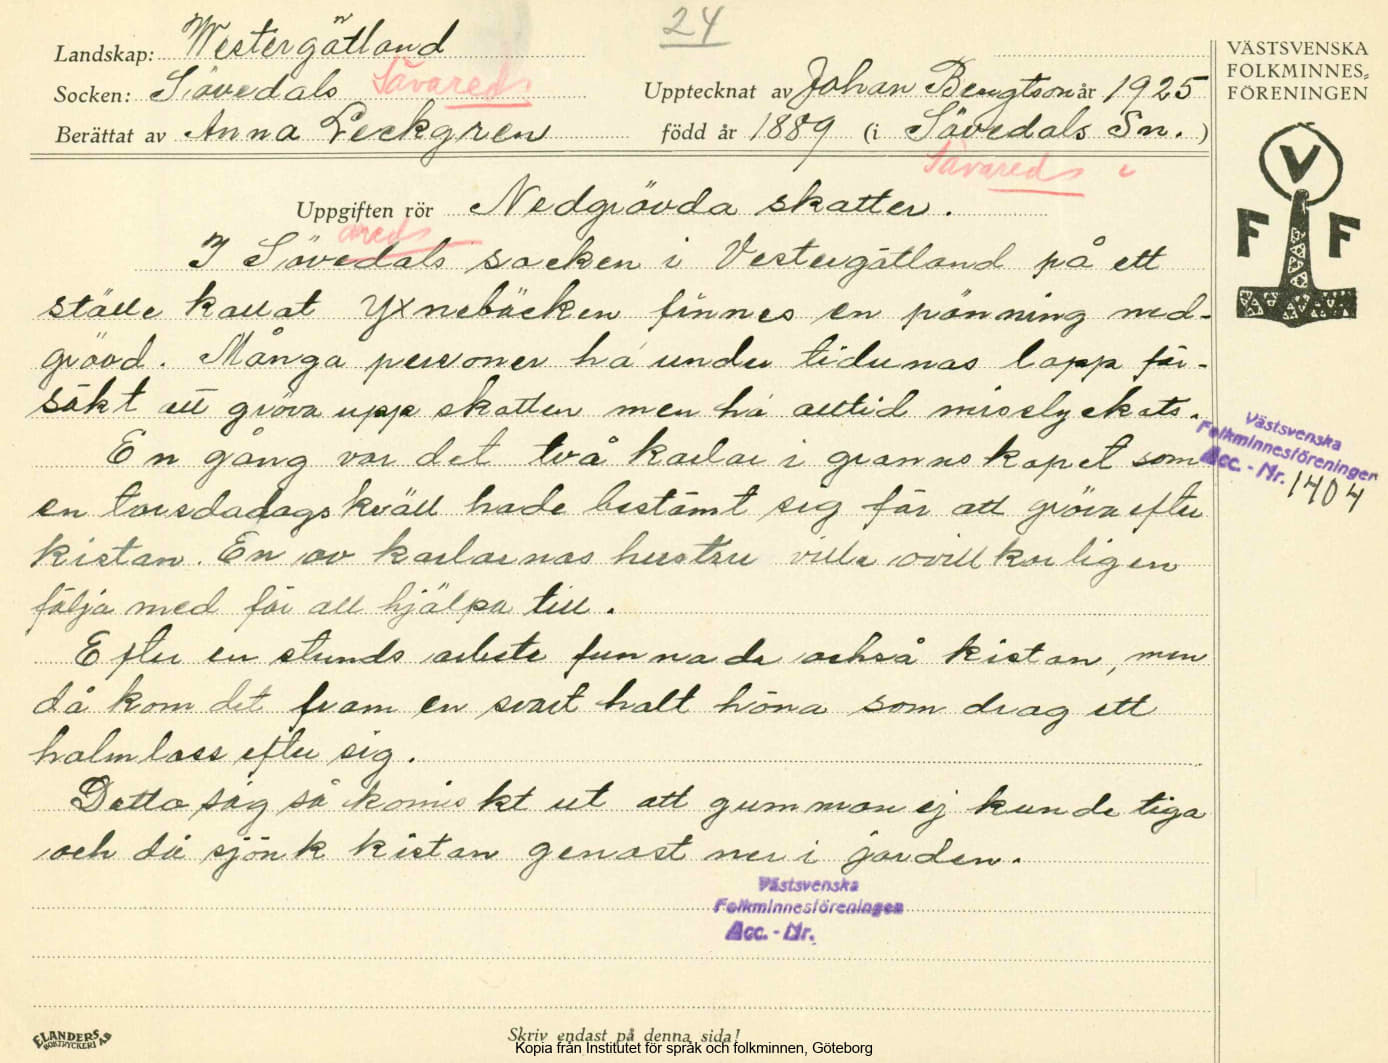 24
Landskap: Westergötland
Socken: Sövedals Sävareds
Upptecknat av Johan Bengtson år 1925
Berättat av Anna Leckgren född år 1889 (i Sövedals Sn.)
Sävareds
VÄSTSVENSKA
FOLKMINNES-
FÖRENINGEN
V
F F
Uppgiften rör Nedgrövda skatter.
areds
I Sövedals socken i Vestergötland på ett
ställe kallat Yxnebäcken finnes en pänning ned-
grövd. Många personer ha under tidernas lopp för-
sökt att gröva upp skatten men ha alltid misslyckats.
En gång var det två karlar i grannskapet som
en torsdadagskväll hade bestämt sig för att gröva efter
kistan. En av karlarnas hustru ville ovillkorligen
följa med för att hjälpa till.
Efter en stunds arbete funno de också kistan, men
då kom det fram en svart halt höna som drog ett
halmlass efter sig.
Detta såg så komiskt ut att gumman ej kunde tiga
och då sjönk kistan genast ner i jorden.
Västsvenska
Folkminnesföreningen
Acc. - Nr. 1404
Västsvenska
Folkminnesföreningen
Acc. - Nr.
ELANDERS
BOKTRYCKERI AB
Skriv endast på denna sida!
Kopia från Institutet för språk och folkminnen, Göteborg